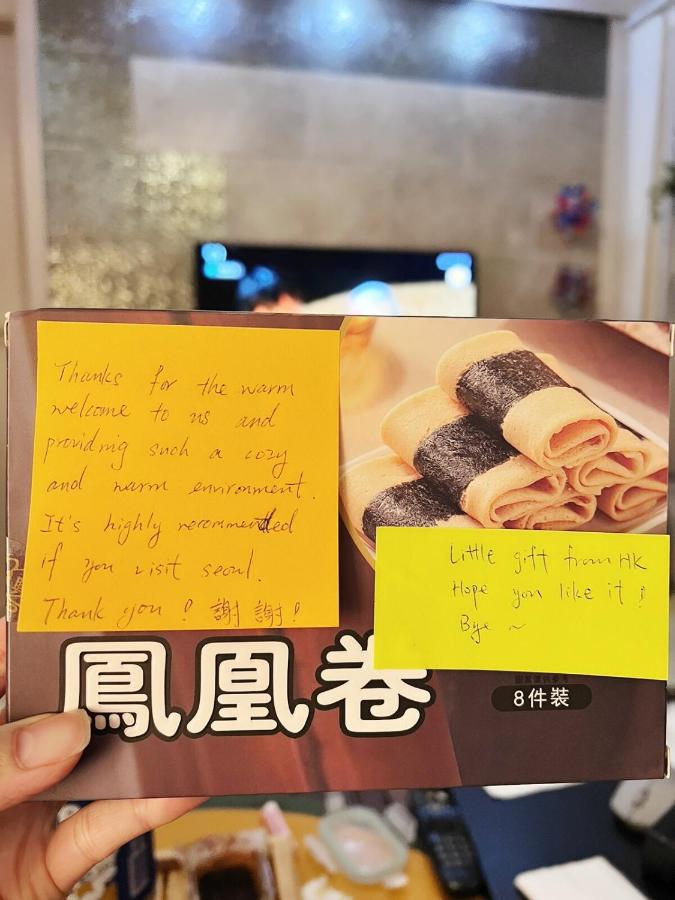 Thanks for the warm
welcome to us and
providing such a cozy
and warm environment.
It's highly recommended
if you visit seoul.
Thank you! 謝謝!
Little gift from HK
Hope you like it!
Bye ~
鳳凰卷
8件裝